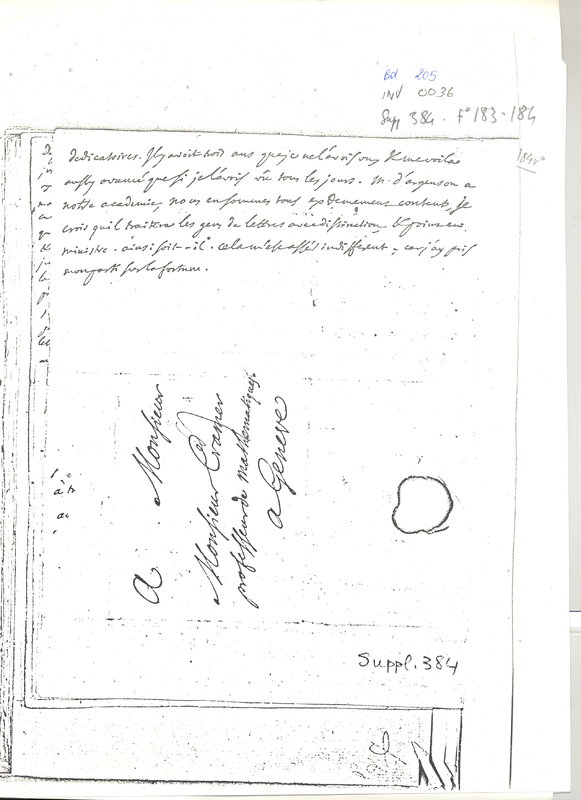 Bd 205
INV 0036
Supp 384. f° 183-184
184 v°
dedicatoires. Il y avoit trois ans que je ne l'avois vu, & me voila
aussy avancé que si je l'avois vû tous les jours. M. d'argenson a
notre academie, nous en sommes tous extremement contents, je
crois qu'il traitera les gens de lettres avec distinction, &
ministre. ainsi soit-il. cela m'est assés indifferent, car j'ay pris
mon parti sur la fortune.
A Monsieur
Monsieur Cramer
professeur de mathematiques
a Geneve
Suppl. 384